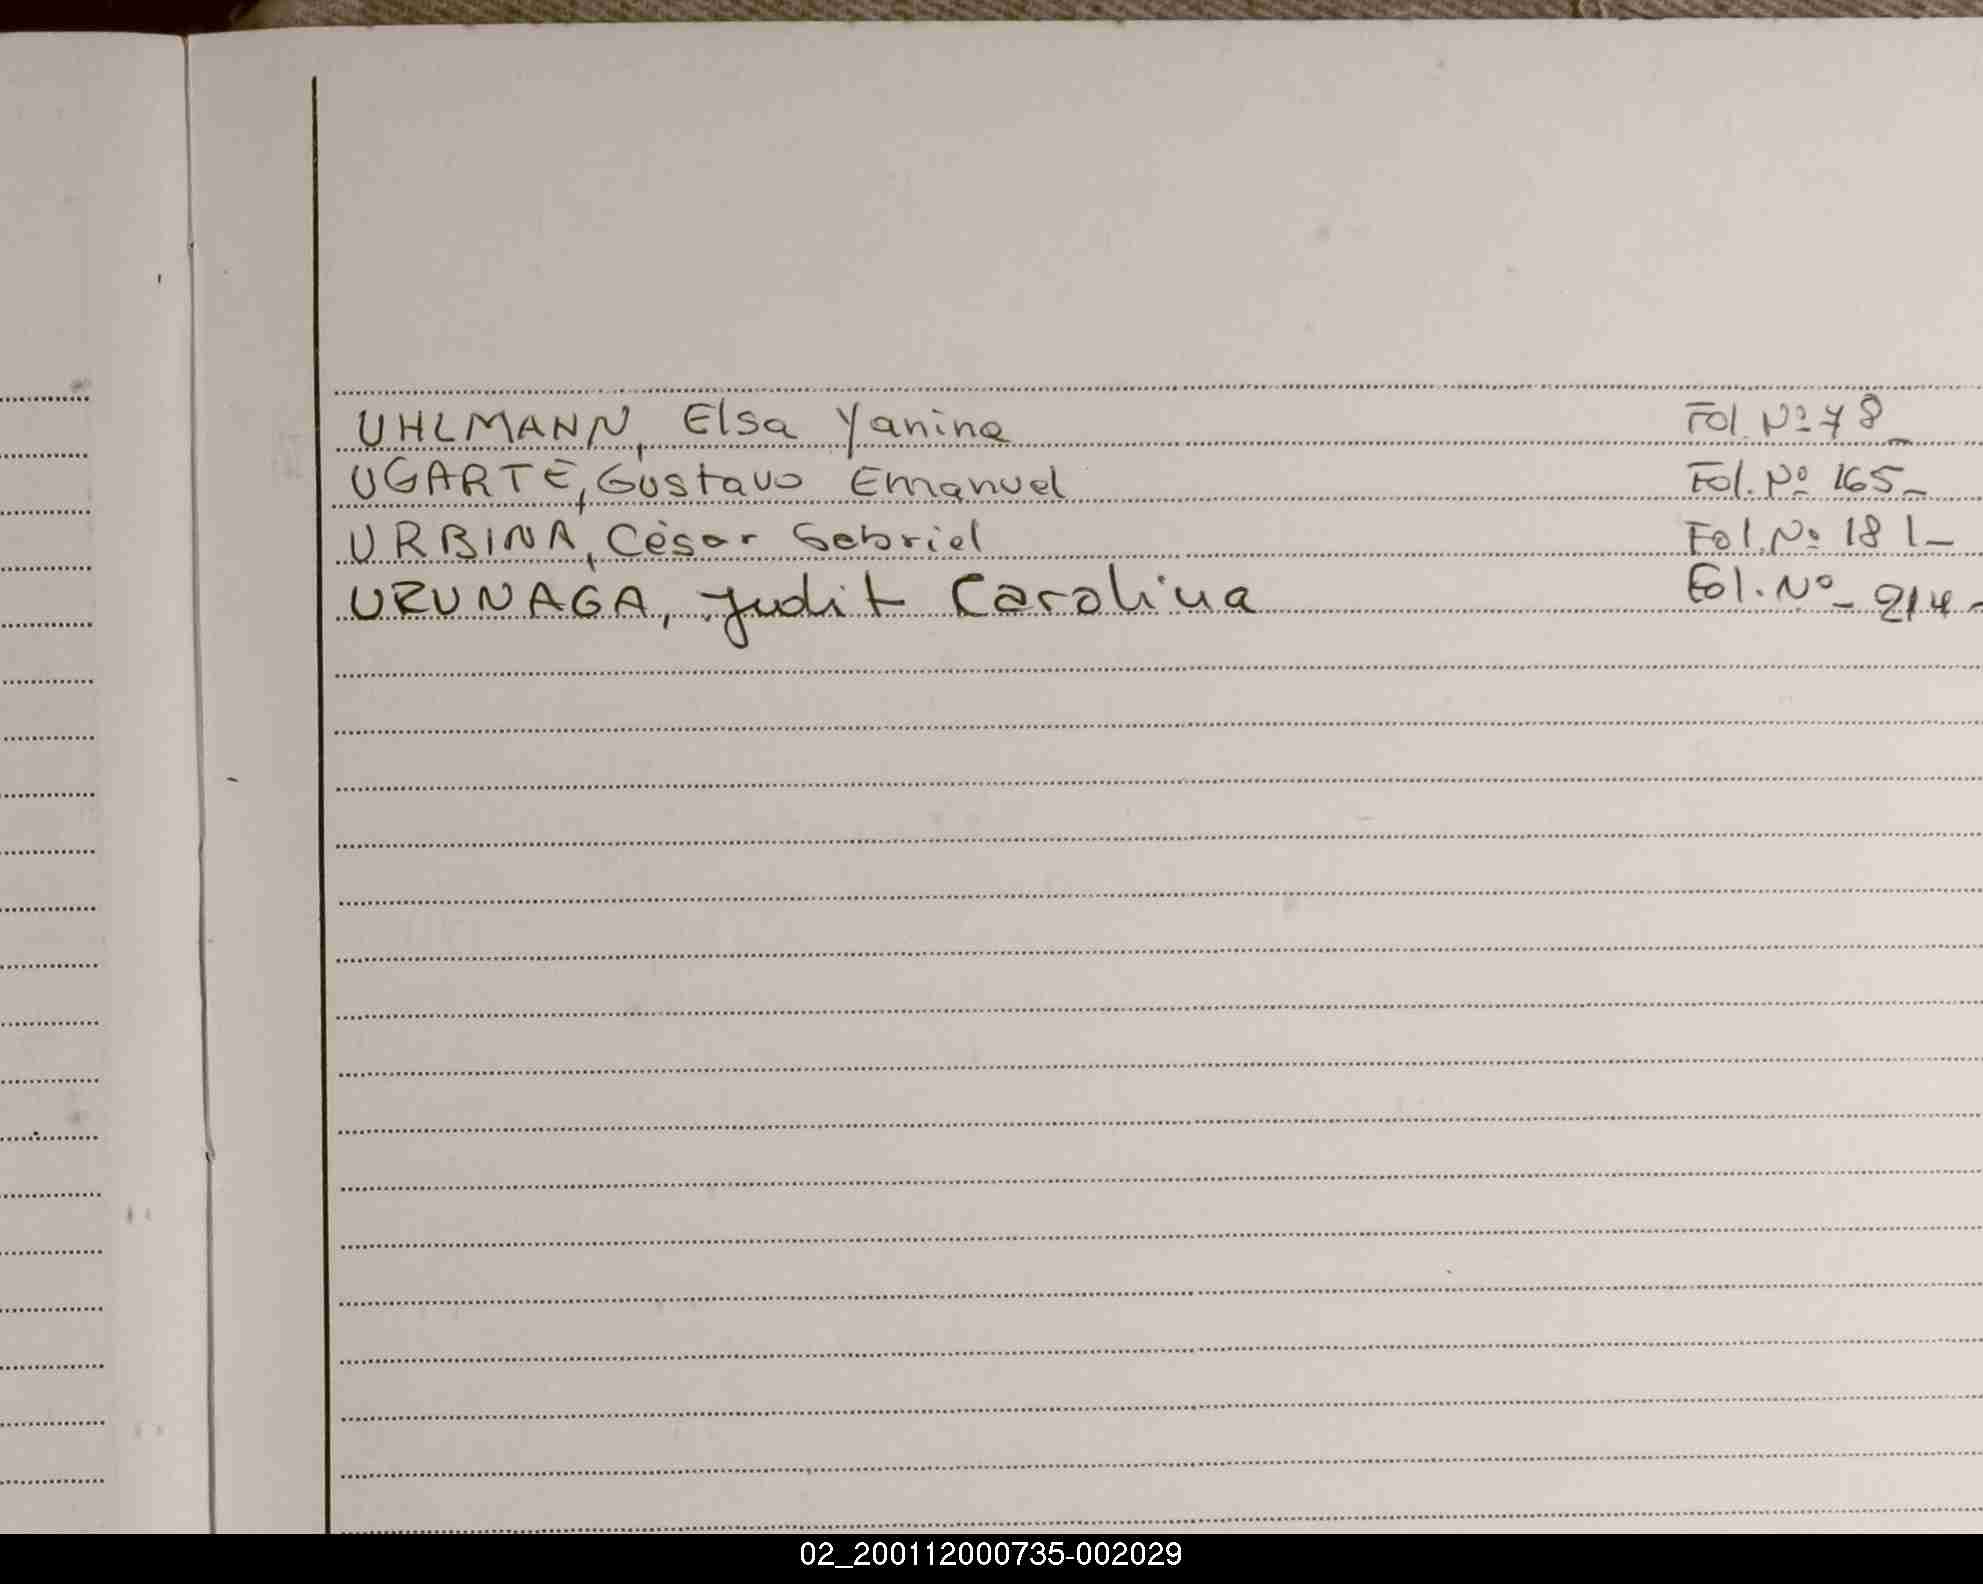 UHLMANN, Elsa Yanina Fol. Nº 78_
UGARTE, Gustavo Emanuel Fol. Nº 165_
URBINA, César Gabriel Fol. Nº 181_
URUNAGA, Judit Carolina Fol. Nº_ 214_
02_200112000735-002029